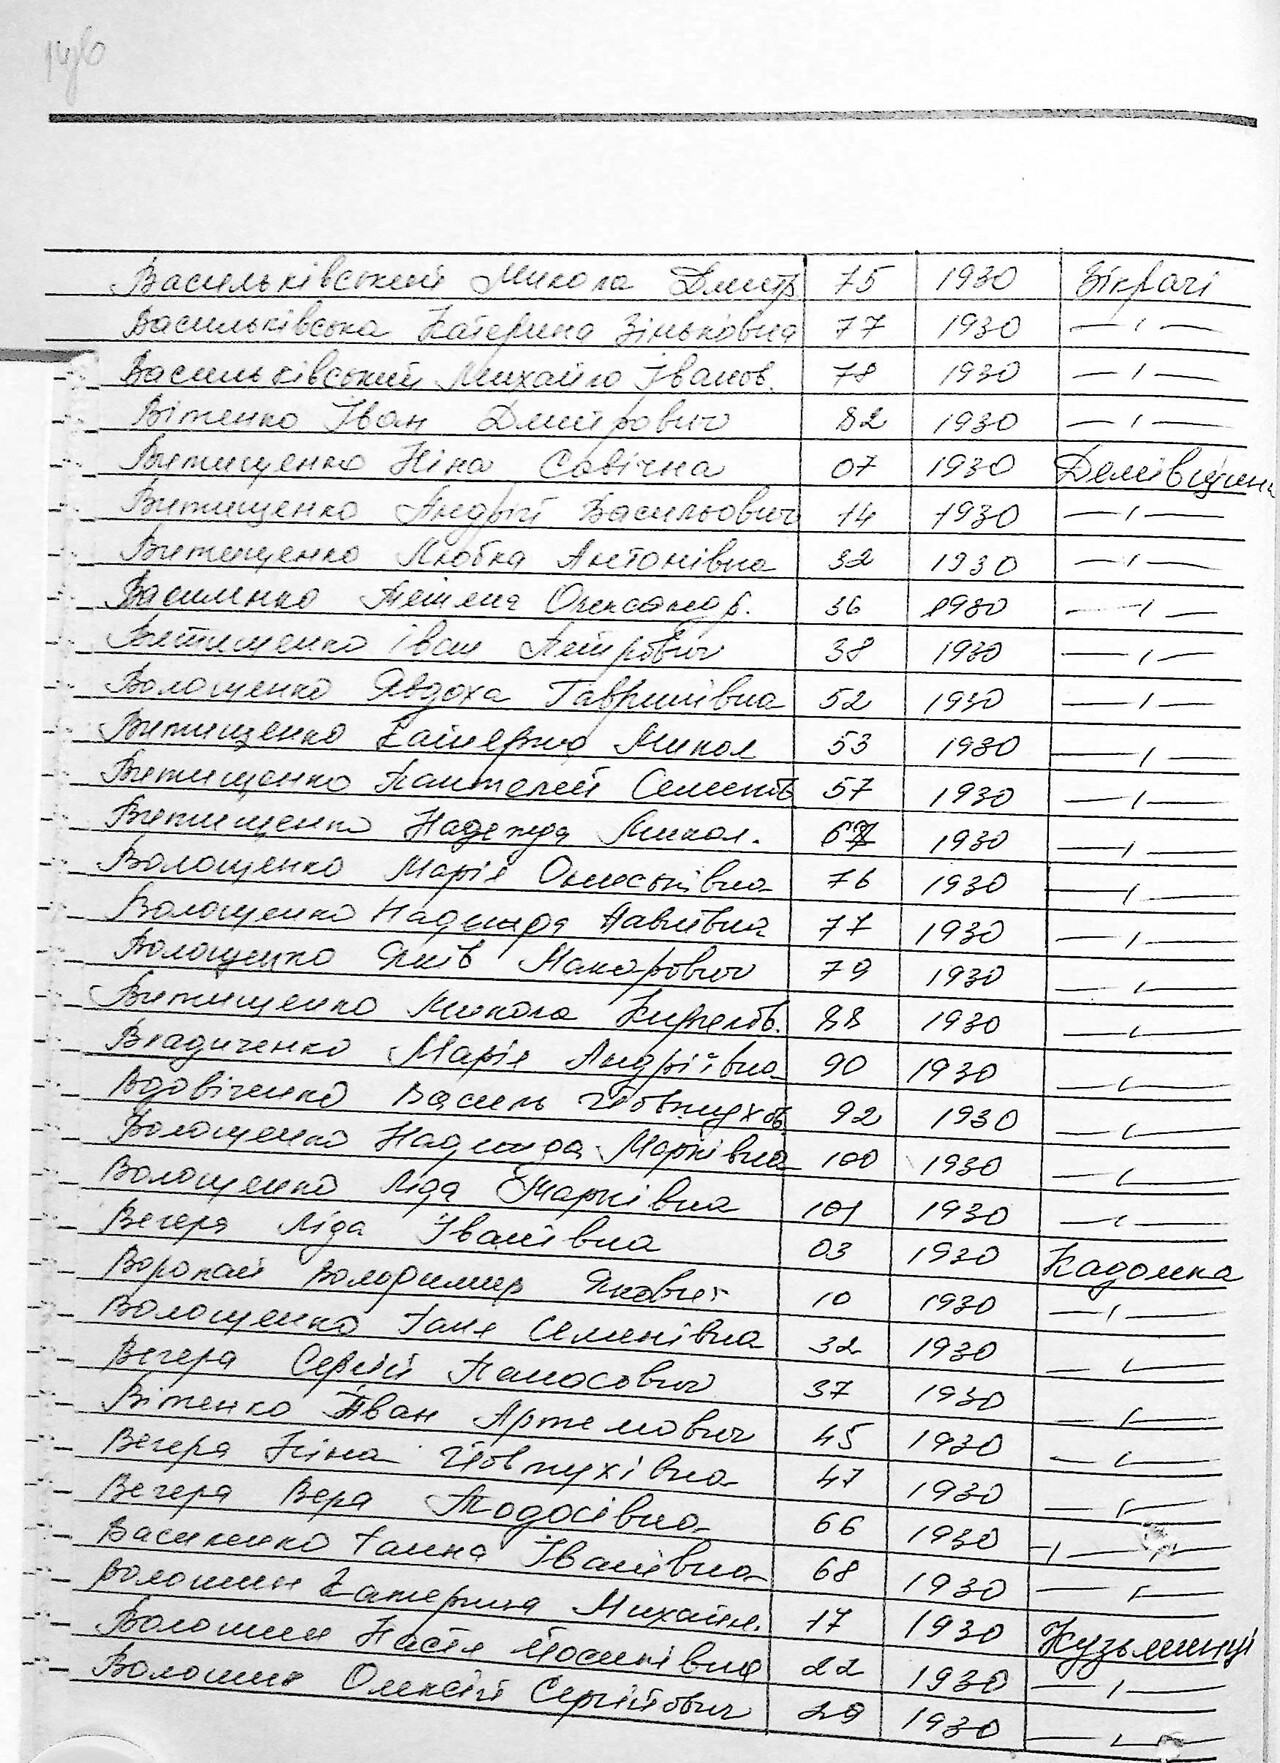 146
Васильківський Микола Дмитр 75 1930 Зікрачі
Васильківська Катерина Зіньковна 77 1930 —"—
Васильківський Михайло Іванов. 78 1930 —"—
Вітенко Іван Дмитрович 82 1930 —"—
Витищенко Ніна Савічна 07 1930 Демівщина
Витищенко Андрій Васильович 14 1930 —"—
Витищенко Любка Антонівна 32 1930 —"—
Василенко Олександр. 36 1930 —"—
Витищенко Іван Петрович 38 1930 —"—
Волощенко Явдоха Гаврилівна 52 1930 —"—
Витищенко Катерина Микол 53 1930 —"—
Витищенко Пантелей Семенов 57 1930 —"—
Витищенко Надежда Микол. 1930 —"—
Волощенко Марія Ониськівна 76 1930 —"—
Волощенко Надежда Павлівна 77 1930 —"—
Волощенко Яків Макарович 79 1930 —"—
Витищенко Микола Кирилов. 88 1930 —"—
Владиченко Марія Андріївна 90 1930 —"—
Вдовіченко Василь Йовпухов. 92 1930 —"—
Волощенко Надежда Марківна 100 1930 —"—
Волощенко Ліда Марківна 101 1930 —"—
Вегера Ліда Іванівна 03 1930 Кадомка
Воропай Володимир Якович 10 1930 —"—
Волощенко Ганя Семенівна 32 1930 —"—
Вегера Сергій Панасович 37 1930 —"—
Вітенко Іван Артемович 45 1930 —"—
Вегера Ніна Йовпухівна 47 1930 —"—
Вегера Вера Тодосівна 66 1930 —"—
Василенко Ганна Іванівна 68 1930 —"—
Волошин Катерина Михайл. 17 1930 Кузьминці
Волошин Настя Йосипівна 22 1930 —"—
Волошин Олексій Сергійович 29 1930 —"—